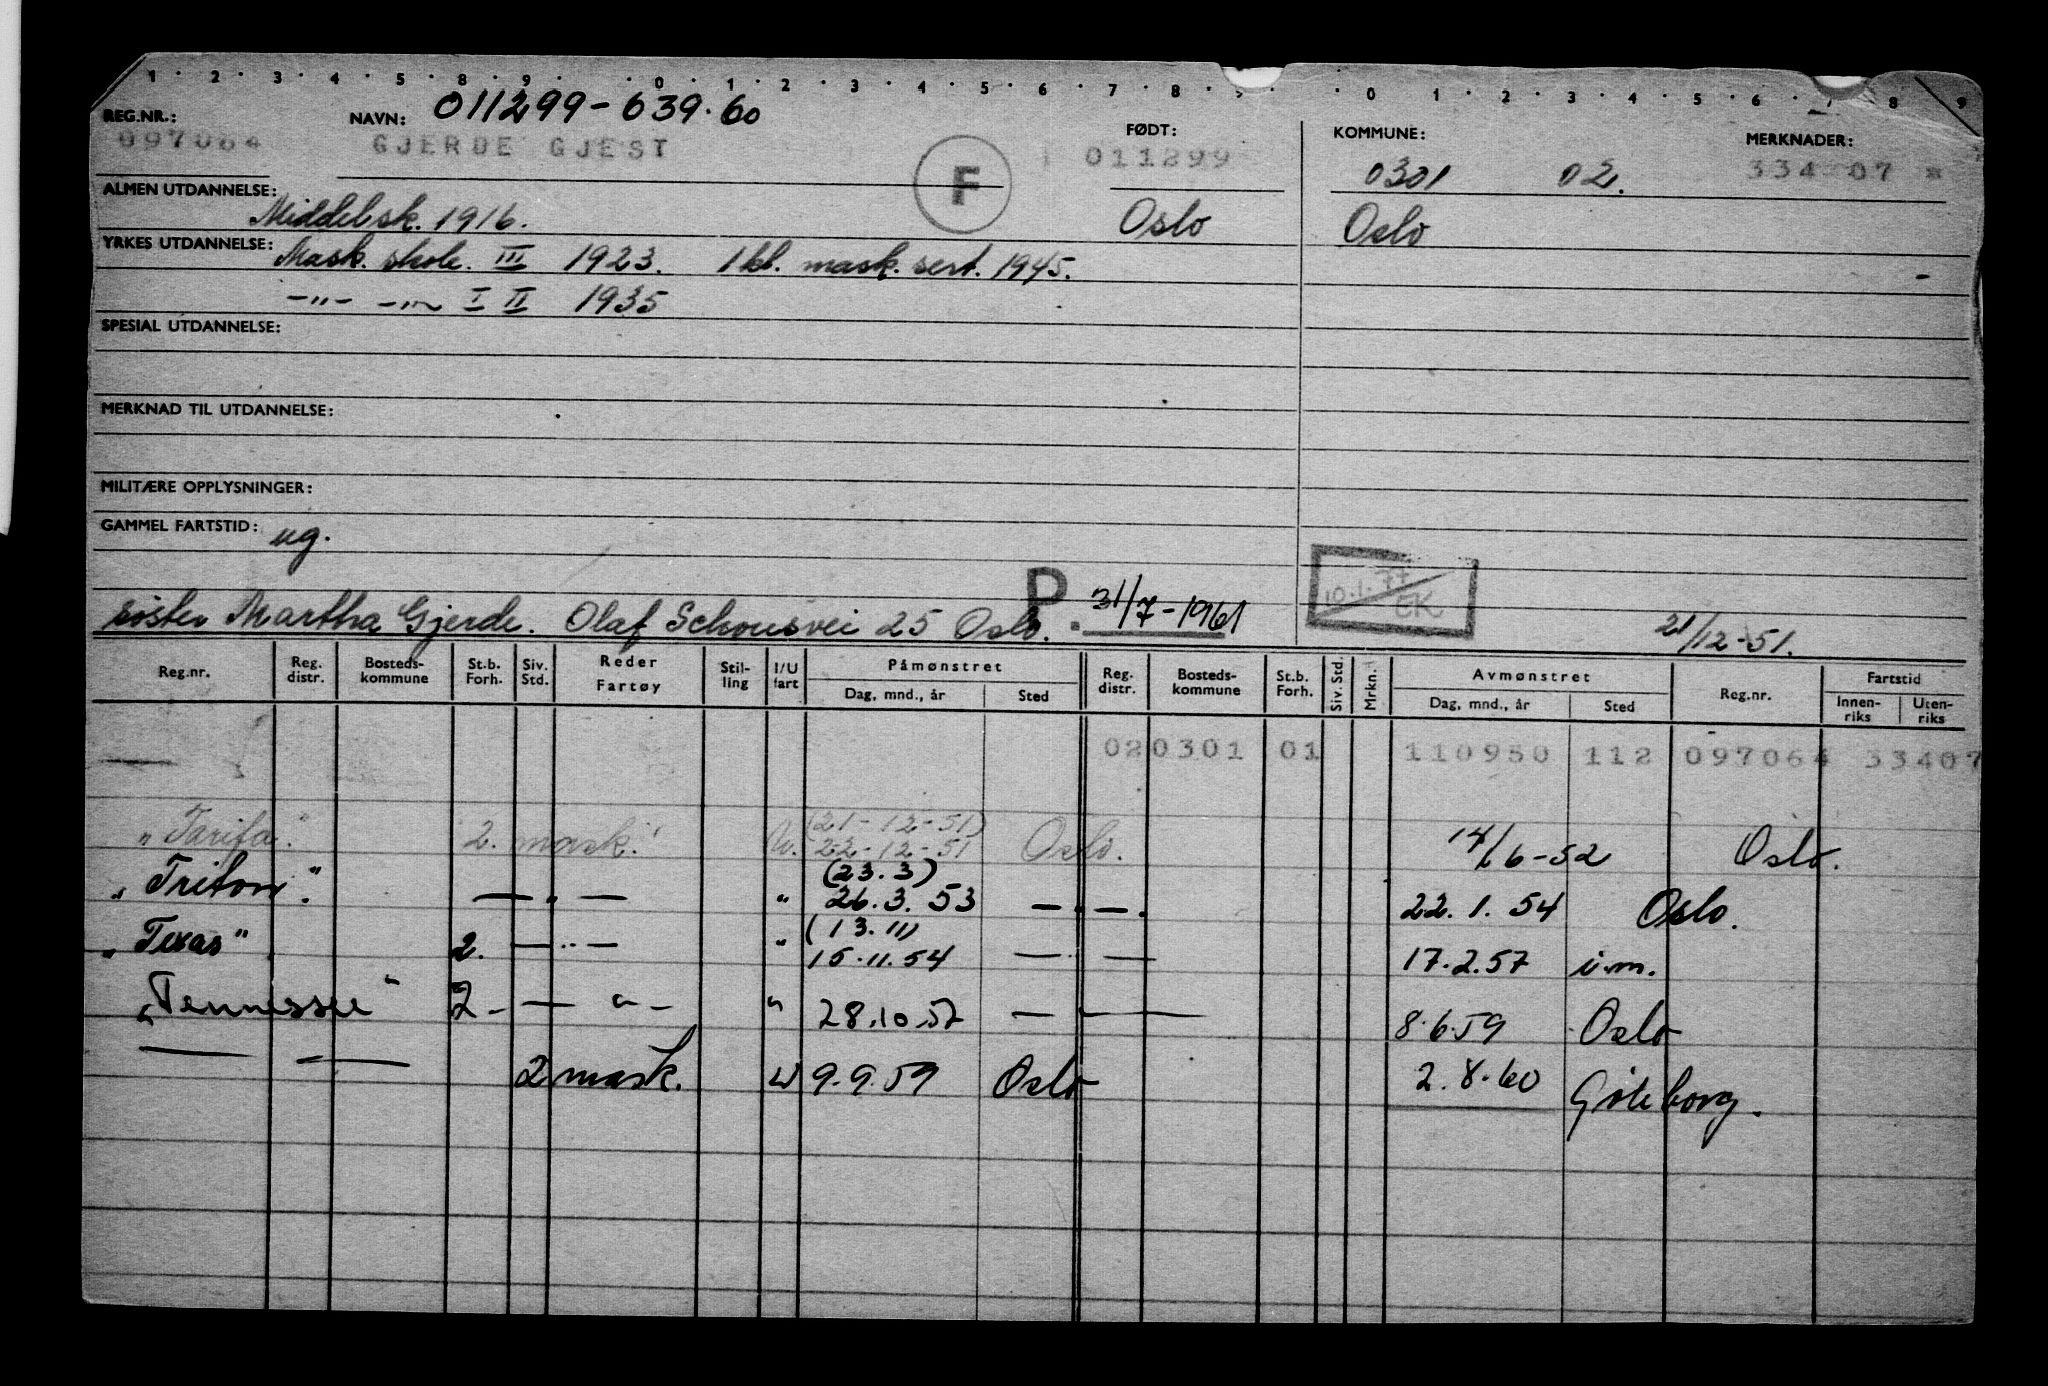 1 · 2 · 3 · 4 · 5 · 8 · 9 · · 0 · 1 · 2 · 3 · 4 · 5 · 6 · 7 · 8 · 9 · · 0 · 1 · 2 · 3 · 4 · 5 · 6 · 7 · 8 · 9
REG.NR.: NAVN: 011299-639.60 FØDT: KOMMUNE: MERKNADER:
097064 GJERDE GJEST F 011299 0301 02. 334 07
ALMEN UTDANNELSE: Middelsk. 1916. Oslo Oslo
YRKES UTDANNELSE: Mask. skole. III 1923. 1 kl. mask. sert. 1945.
-"- -"- I II 1935
SPESIAL UTDANNELSE:
MERKNAD TIL UTDANNELSE:
MILITÆRE OPPLYSNINGER:
GAMMEL FARTSTID: ug.
P. 31/7-1961 10.1.77 EK
søster Martha Gjerde. Olaf Schousvei 25 Oslo. 21/12-51.
Reg.nr. Reg. distr. Bosteds- kommune St.b. Forh. Siv. Std. Reder Fartøy Stil- ling I/U fart Påmønstret Dag, mnd., år Sted Reg. distr. Bosteds- kommune St.b. Forh. Siv. Std. Mrkn. Avmønstret Dag, mnd., år Sted Reg.nr. Fartstid Innen- riks Uten- riks
020301 01 110950 112 097064 33407
"Tarifa". 2. mask. U. (21-12-51) 22-12-51 Oslo. 14/6-52 Oslo.
"Triton". — " — " (23.3) 26.3.53 — " —. 22.1.54 Oslo.
"Texas" 2. — " — " (13.11) 15.11.54 — — 17.2.57 i.m.
"Tennessee" 2 - — " - " 28.10.57 — — 8.6.59 Oslo
— — 2 mask. U 9.9.59 Oslo 2.8.60 Göteborg.